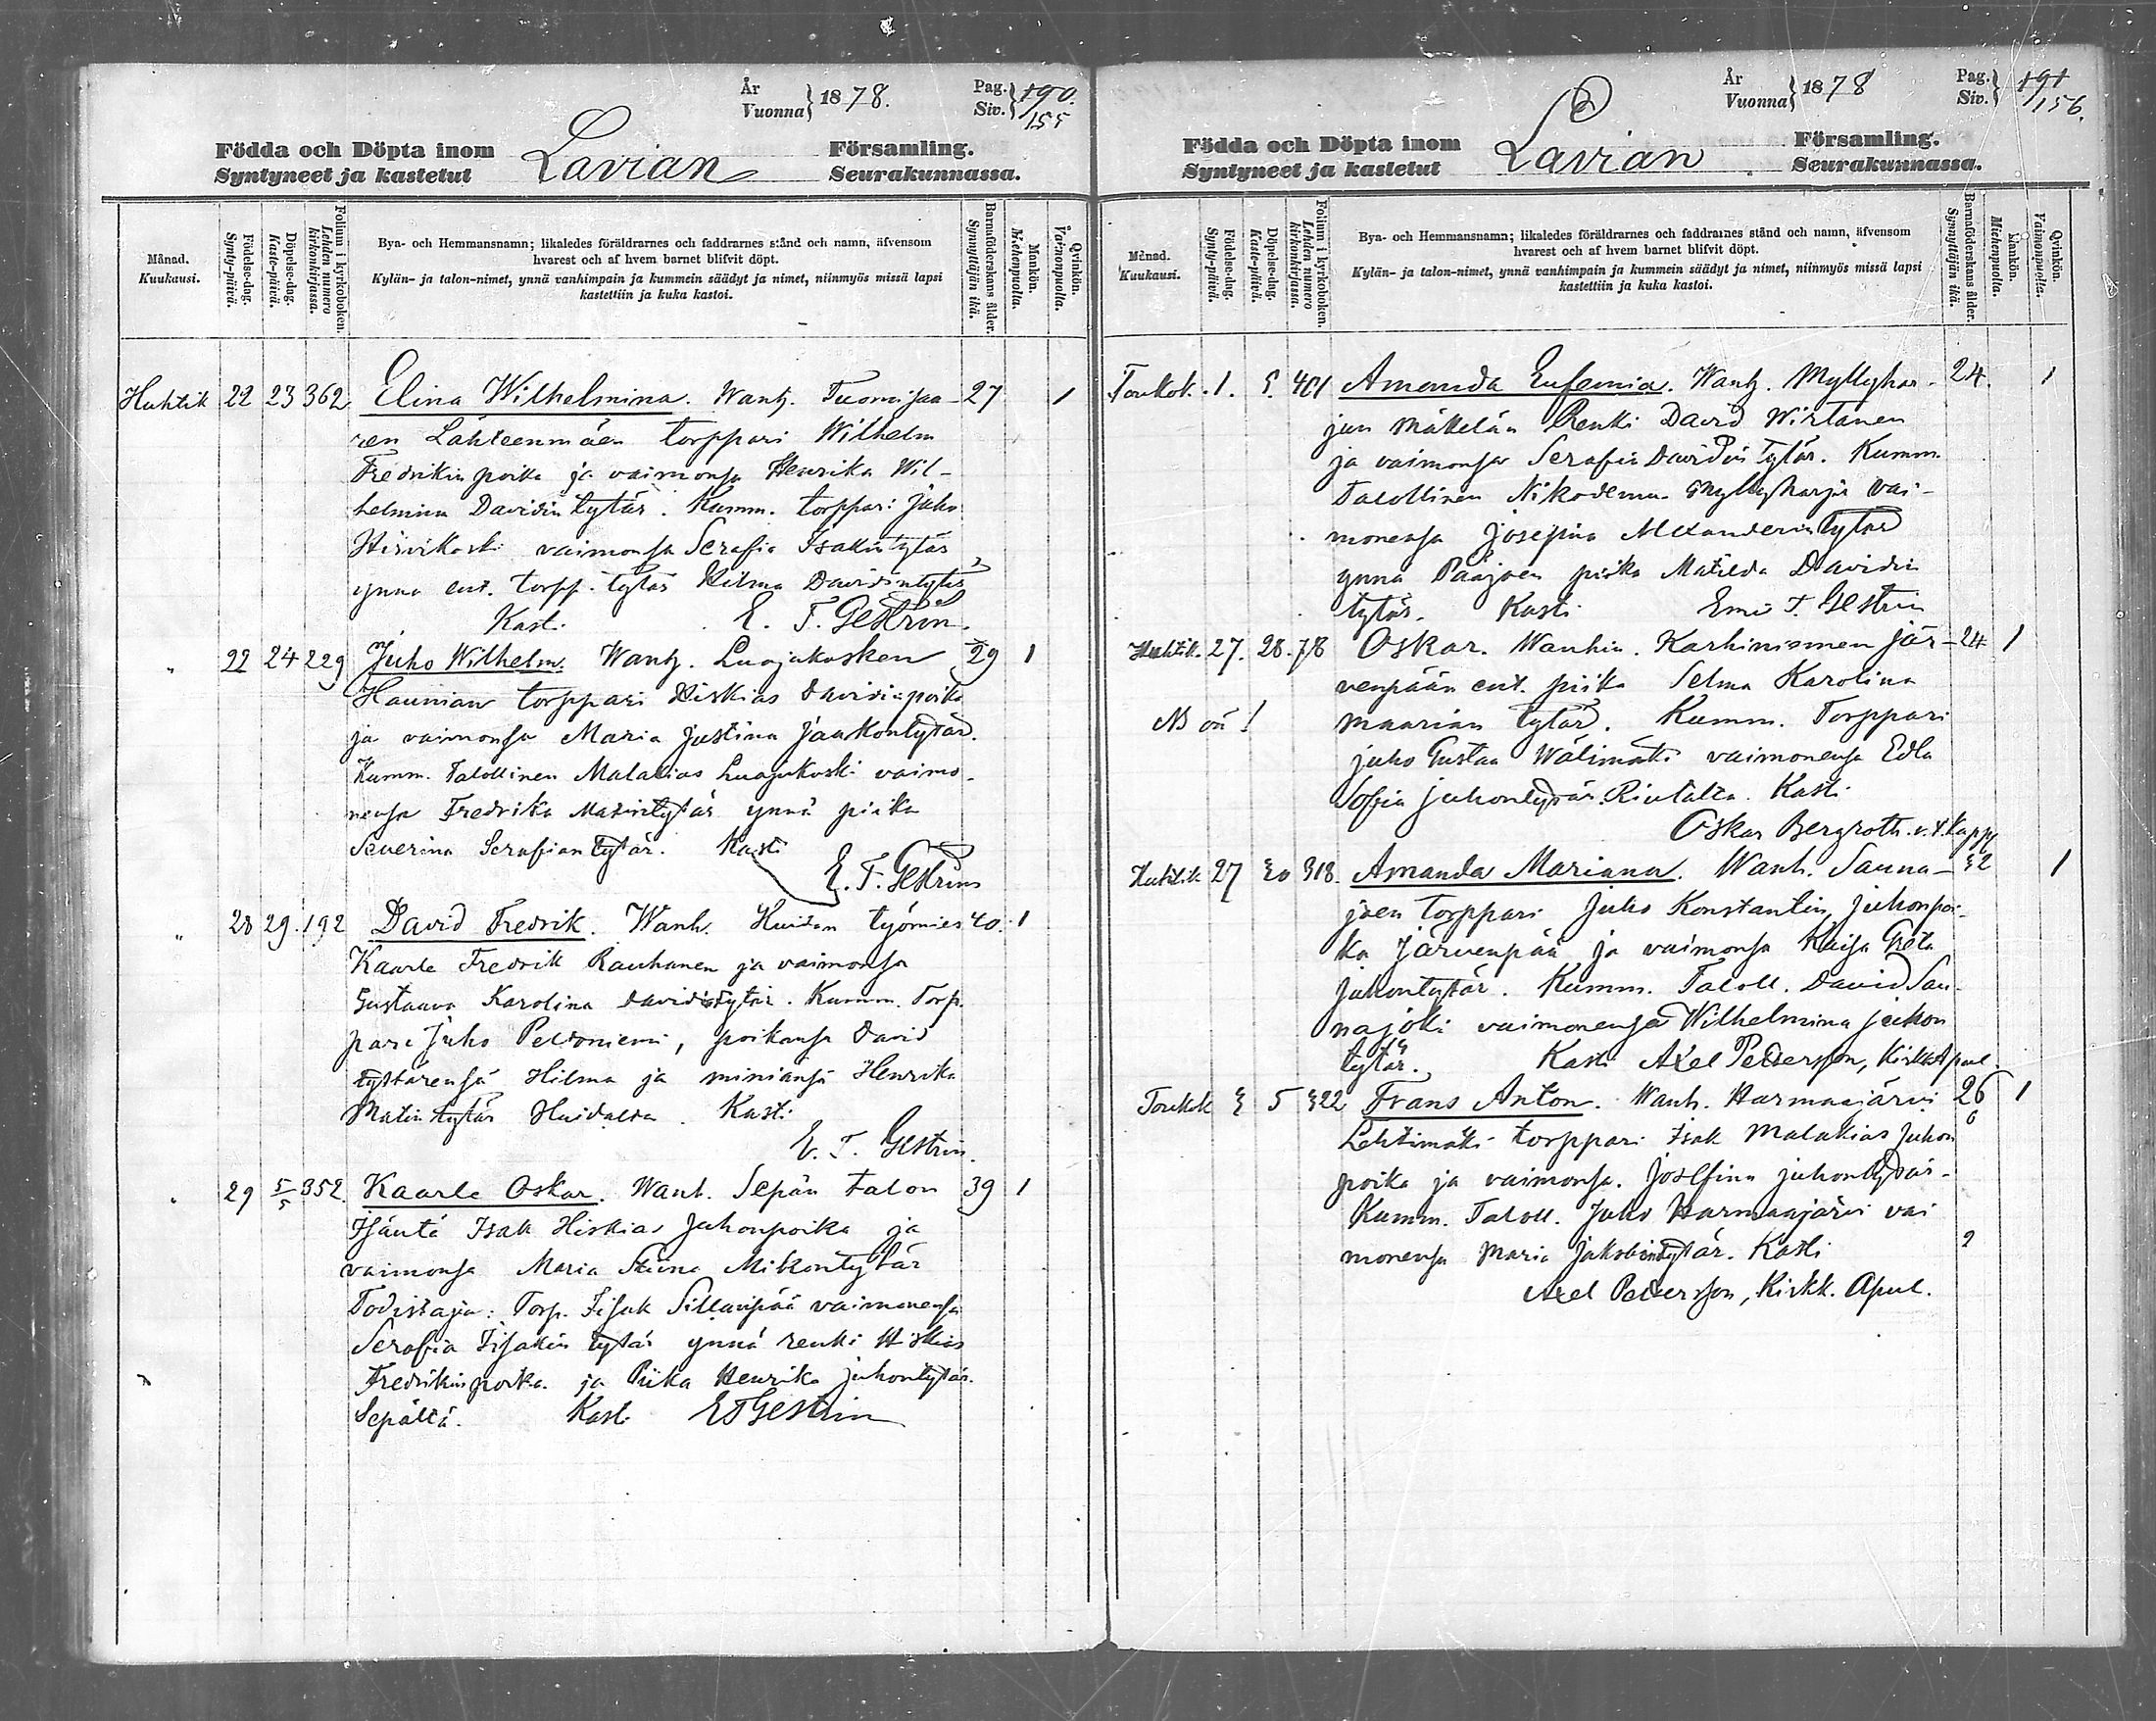 År
Vuonna } 1878.
Pag.
Siv. } 190.
155
Födda och Döpta inom Lavian Församling.
Syntyneet ja kastetut Seurakunnassa.
Månad.
Kuukausi.
Födelse-dag.
Synty-päivä.
Döpelse-dag.
Kaste-päivä.
Folium i kyrkoboken.
Lehden numero kirkonkirjassa.
Bya- och Hemmansnamn; likaledes föräldrarnes och faddrarnes stånd och namn, äfvensom
hvarest och af hvem barnet blifvit döpt.
Kylän- ja talon-nimet, ynnä vanhimpain ja kummein säädyt ja nimet, niinmyös missä lapsi
kastettiin ja kuka kastoi.
Barnaföderskans ålder.
Synnyttäjän ikä.
Mankön.
Miehenpuolia.
Qvinkön.
Vaimonpuolia.
Huhtik 22 23 362 Elina Wilhelmina. Wanh. Tuomijaa- 27 1
ren Lähteenmäen torppari Wilhelm
Fredrikin poika ja vaimonsa Henrika Wil-
helmina Davidin tytär. Kumm. torppari Juho
Hirvikoski vaimonsa Serafia Isakin tytär
ynna ent. torpp. tytär Hilma Davidintytär
Kast. E. F. Gestrin.
" 22 24 229 Juho Wilhelm. Wanh. Luojukosken 29 1
Haunian torppari Hiskias Davidinpoika
ja vaimonsa Maria Justina Jaakontytär.
Kumm. Talollinen Malakias Luojukoski vaimo-
nensa Fredrika Matintytär ynnä piika
Severina Serafian tytär. Kasti
E. F. Gestrin
" 28 29. 192 David Fredrik. Wanh. Huidan työmies 40. 1
Kaarle Fredrik Rauhanen ja vaimonsa
Gustaava Karolina Davidintytär. Kumm. Torp.
pari Juho Peltoniemi, poikansa David
tyttärensä Hilma ja miniänsä Henrika
Matin tytär Huidalda. Kasti
E. F. Gestrin.
" 29 5/5 352. Kaarle Oskar. Wanh. Sepän talon 39 1
Isäntä Isak Hiskias Juhonpoika ja
vaimonsa Maria Mikkontytär
Todistaja: Torp. Iisak Sillanpää vaimonensa
Serafia Iisakin tytär ynnä renki Hiskias
Fredrikinpoika ja Piika Henrika Juhontytär.
Sepältä. Kasti E F Gestrin
År
Vuonna } 1878
Pag.
Siv. } 191
156.
Födda och Döpta inom Lavian Församling.
Syntyneet ja kastetut Seurakunnassa.
Månad.
Kuukausi.
Födelse-dag.
Synty-päivä.
Döpelse-dag.
Kaste-päivä.
Folium i kyrkoboken.
Lehden numero kirkonkirjassa.
Bya- och Hemmansnamn; likaledes föräldrarnes och faddrarnes stånd och namn, äfvensom
hvarest och af hvem barnet blifvit döpt.
Kylän- ja talon-nimet, ynnä vanhimpain ja kummein säädyt ja nimet, niinmyös missä lapsi
kastettiin ja kuka kastoi.
Barnaföderskans ålder.
Synnyttäjän ikä.
Mankön.
Miehenpuolia.
Qvinkön.
Vaimonpuolia.
Toukok. 1. 5. 401 Amanda Eufemia. Wanh. Myllyhar- 24. 1
jun Mäkelän Renki David Wirtanen
ja vaimonsa Serafia Davidin tytär. Kumm.
Talollinen Nikodemus Myllyharju vai-
monensa Josefina Alexanderin tytär
ynna Pääjoen piika Matilda Davidin
tytär. Kasti Emi F. Gestrin
Huhtik. 27. 28. 78 Oskar. Wanhin. Karhiniemen Jär- 24 1
venpään ent. piika Selma Karolina
NB oä! Maarian tytär. Kumm. Torppari
Juho Gustaa Wälimäki vaimonensa Edla
Sofia Juhontytär Riutalta. Kasti
Oskar Bergroth. v.t. Kappl
Huhtik 27 30 318. Amanda Mariana. Wanh. Sauna- 32 1
joen torppari Juho Konstantin Juhonpoi-
ka Järvenpää ja vaimonsa Kaisa Greta
Juhontytär. Kumm. Taloll. David Sau-
najoki vaimonensa Wilhelmina Juhon
tytär. Kasti Axel Pettersson, Kirkk. Apul.
Toukok 3 5 322 Frans Anton. Wanh. Harmaajärvi 26 1
Lehtimäki torppari Isak Malakias Juhon
poika ja vaimonsa. Josefina Juhontytär.
Kumm. Taloll. Juho Harmaajärvi vai
monensa Maria Jakobintytär. Kasti
Axel Pettersson, Kirkk. Apul.